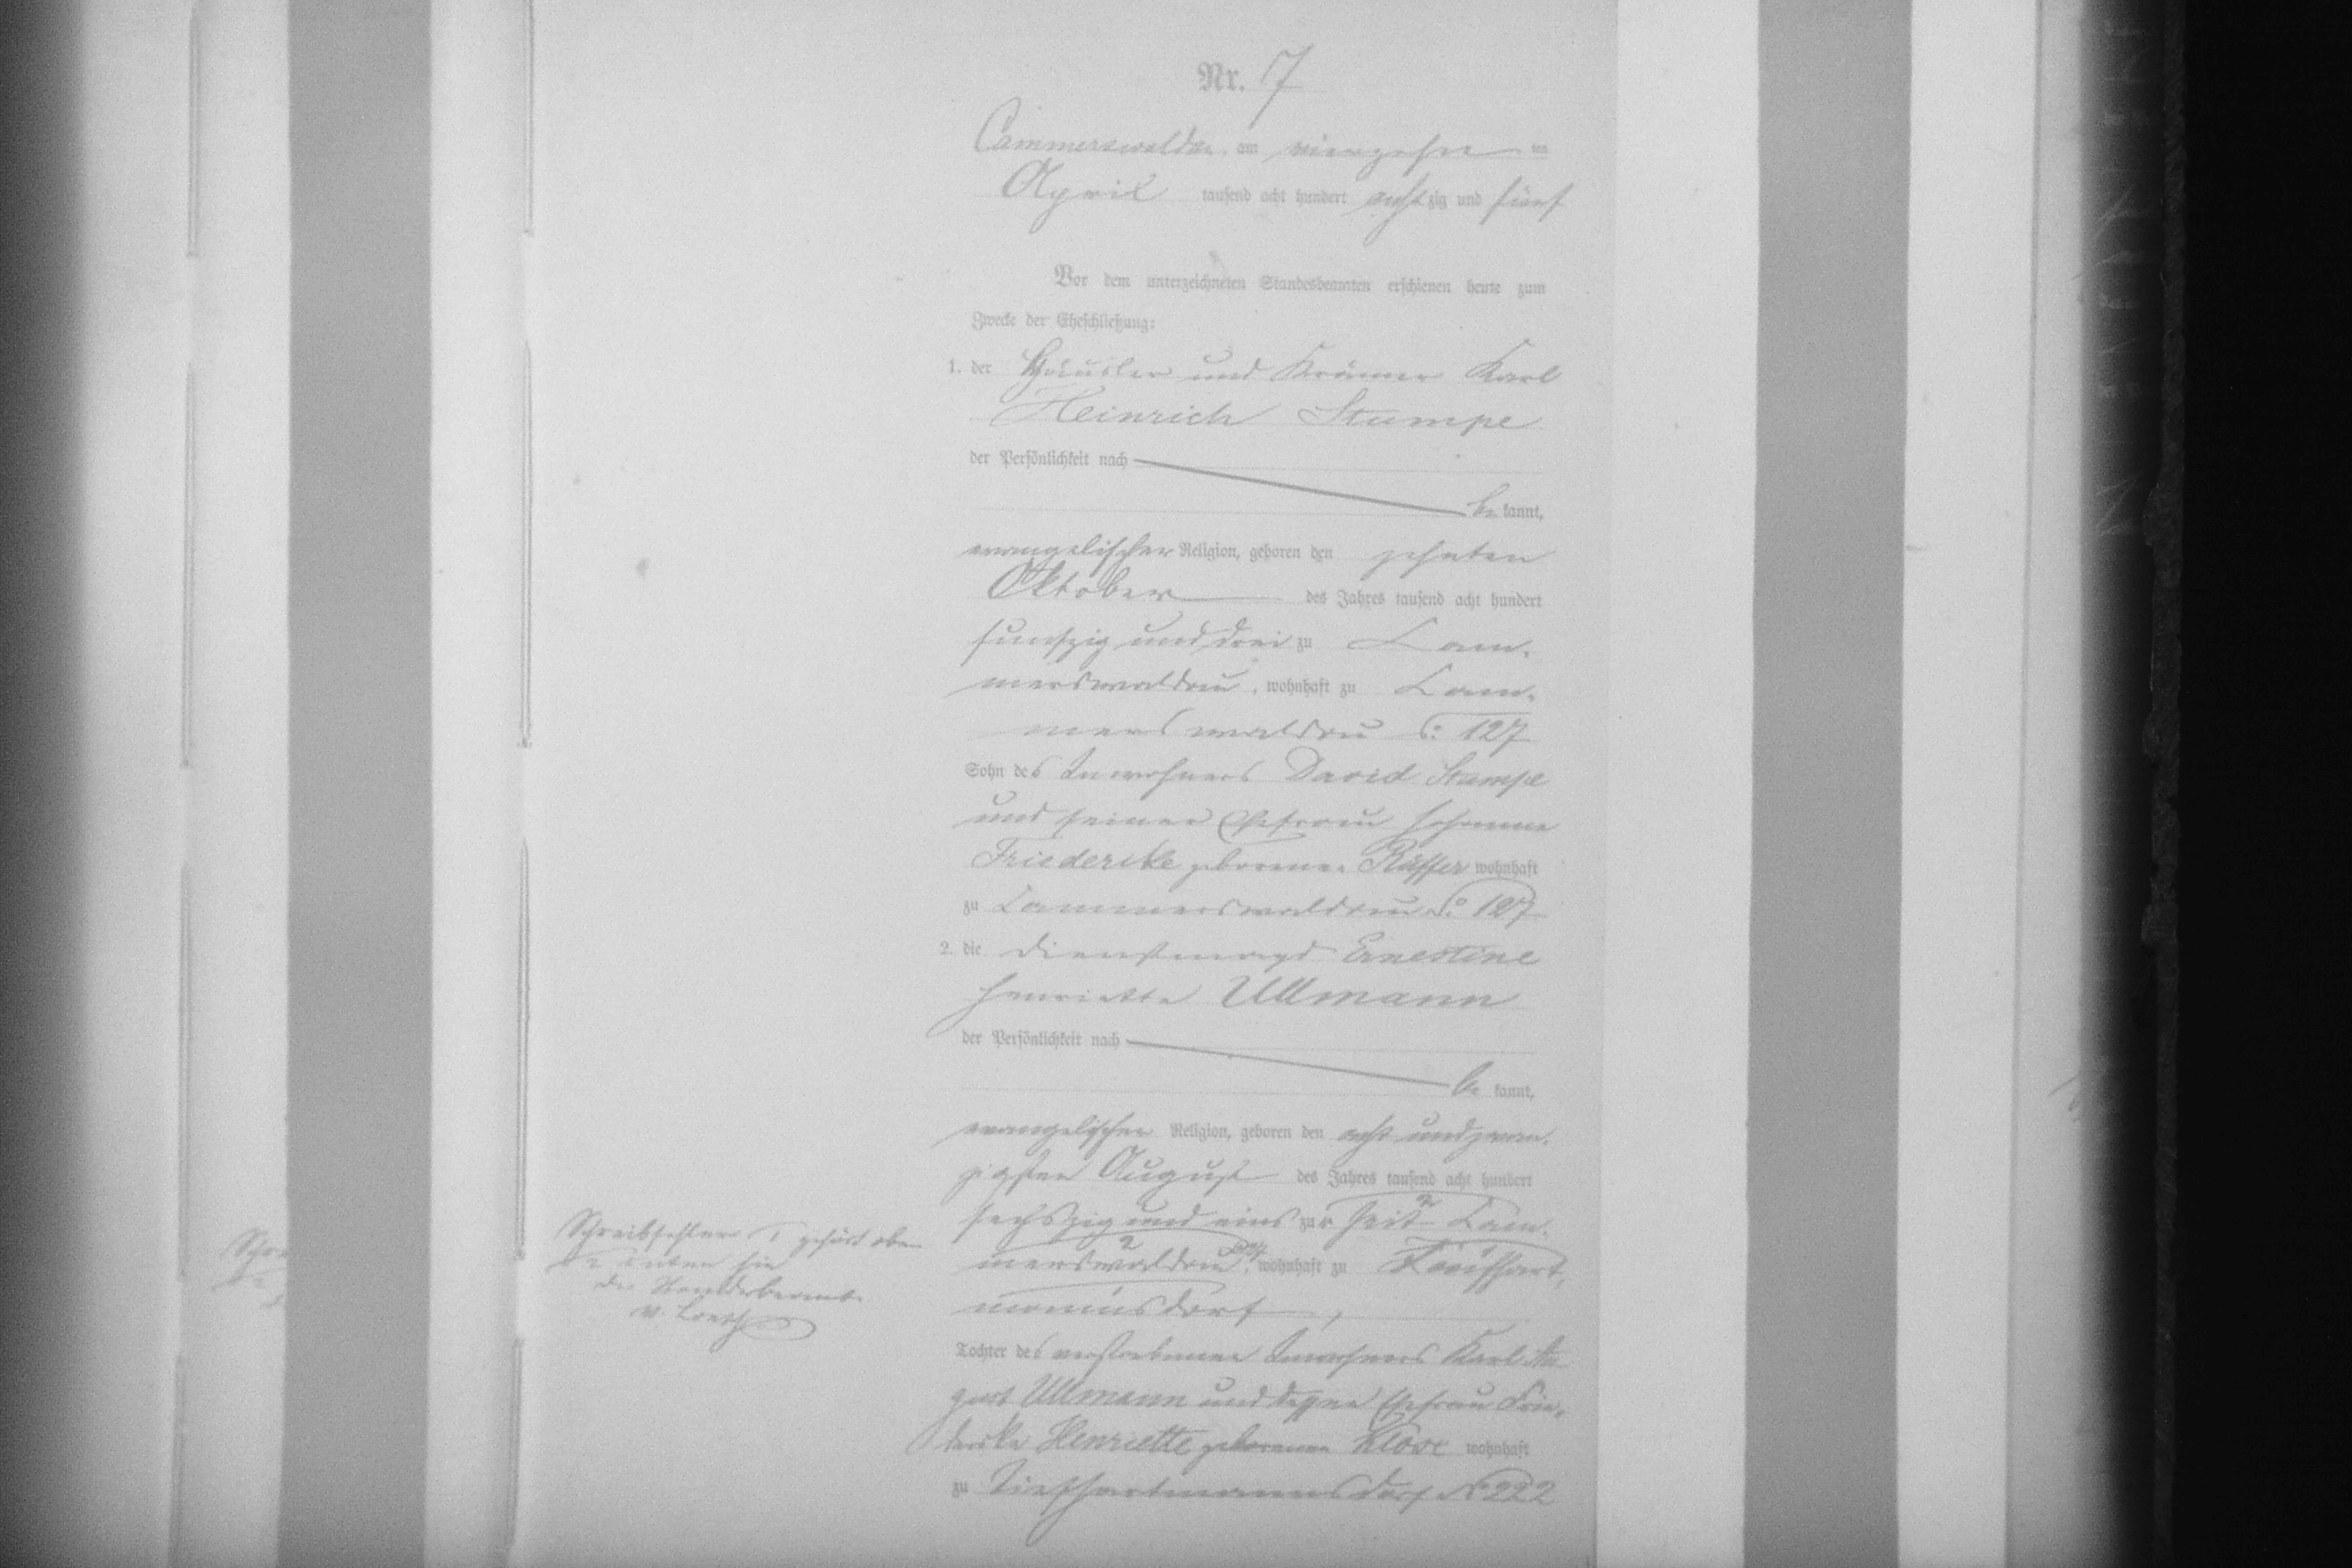 Nr. 7
Cammerswaldau am vierzehn ten
April tausend acht hundert achtzig und fünf
Vor dem unterzeichneten Standesbeamten erschienen heute zum
Zwecke der Eheschließung:
1. der Häusler und Krämer Karl
Heinrich Stumpe
der Persönlichkeit nach
be kannt,
evangelischer Religion, geboren den zehnten
Oktober des Jahres tausend acht hundert
funfzig und drei zu Cam-
merswaldau, wohnhaft zu Cam-
merswaldau 127
Sohn des Inwohners David Stumpe
und seiner Ehefrau Johanne
Friedericke geborenen wohnhaft
zu Cammerswaldau No 127
2. die Dienstmagd Ernestine
Henriette Ullmann
der Persönlichkeit nach
be kannt,
evangelischer Religion, geboren den acht und zwan-
zigsten August des Jahres tausend acht hundert
sechszig und eins zu Cam-
merswaldau, wohnhaft zu
mannsdorf,
Schreibfehler 1 gehört oben
2 unten hin
Der Standesbeamte
Tochter des verstorbenen Inwohners Karl Au-
gust Ullmann und dessen Ehefrau Frie-
dericke Henriette geborenen Klose wohnhaft
zu Tiefhartmannsdorf No 222